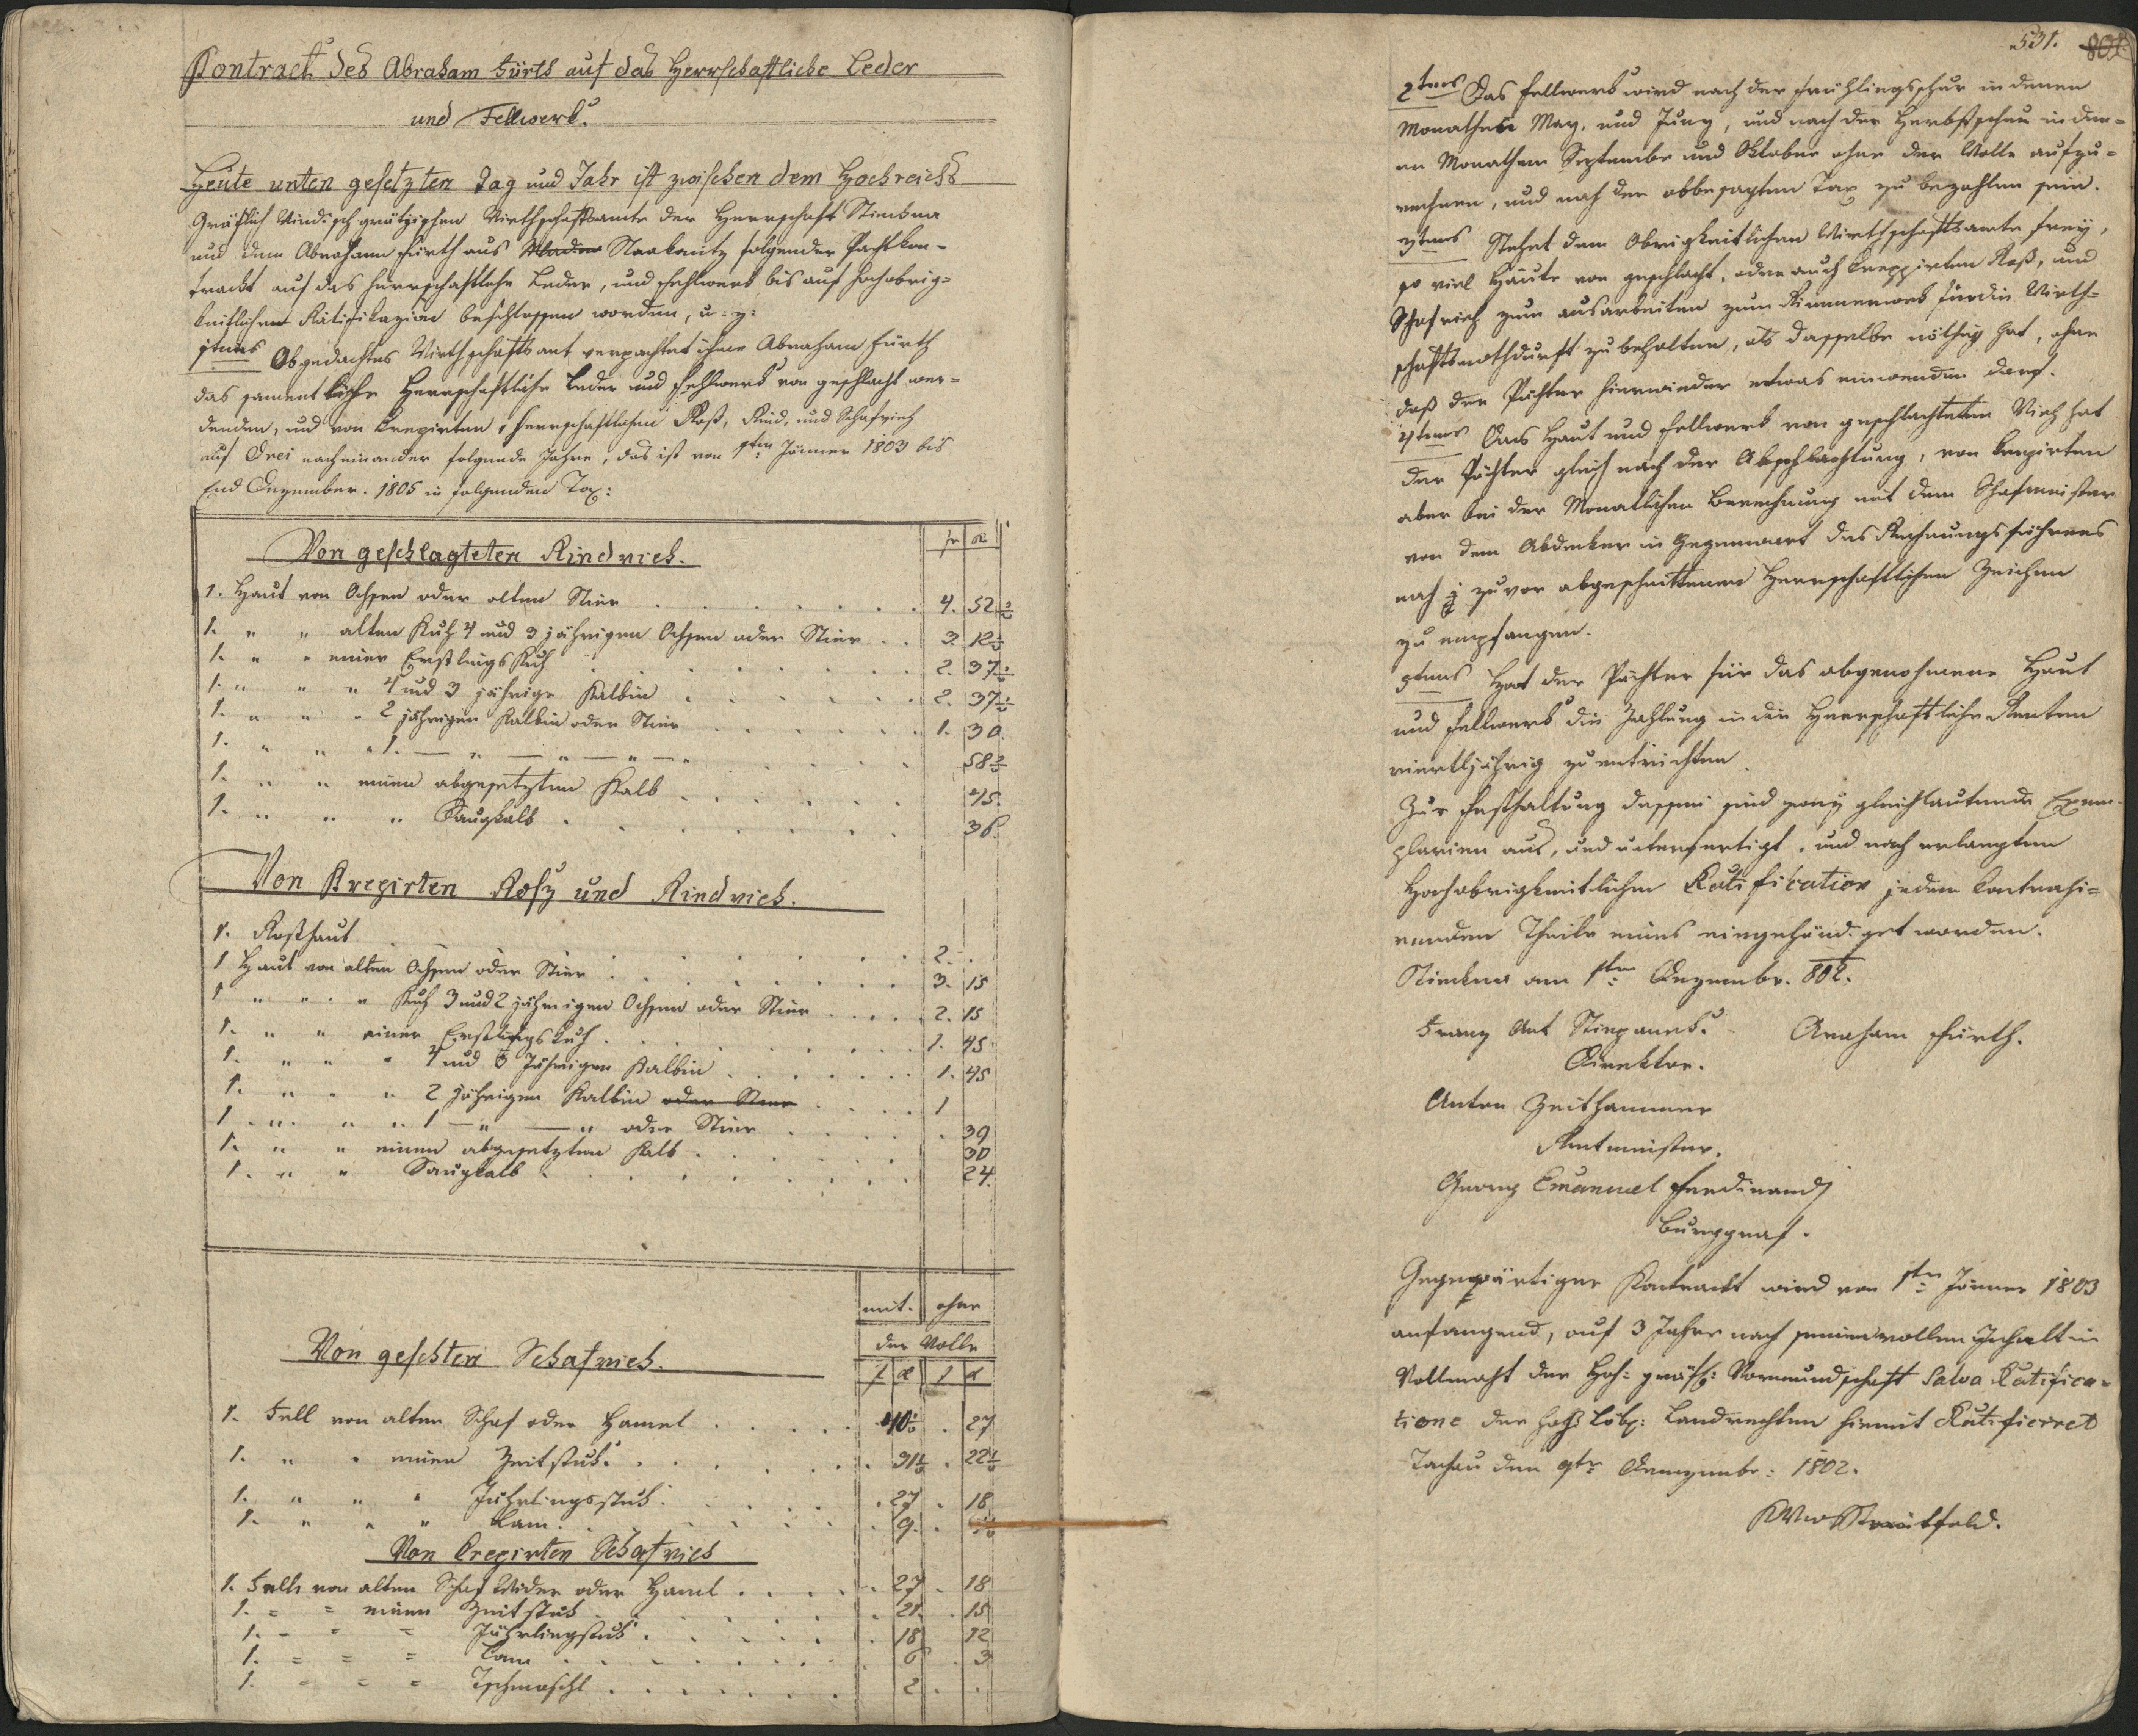 Kontract des Abraham Fürth auf das Herrschaftliche Leder
und Fellwerk.
Heute unten gesetzten Tag und Jahr ist zwischen dem Hochreichs
Gräflich Windischgrätzischen Wirthschaftsamte der Herrschaft Stiekna
und dem Abraham Fürth aus Strakonitz folgender Pachtkon-
trackt auf das herrschaftliche Leder, und Fehlwerk bis auf hochobrig-
keitlichen Ratifikazion beschlossen worden, u: z:
1tens Obgedachtes Wirthschaftsamt verpachtet ihme Abraham Fürth
das sament liche Herrschaftliche Leder und Fehlwerk von geschlacht wer-
denden, und von Crepirten herrschaftlichen Roß, Rind, und Schafvieh
auf Drei nacheinander folgende Jahre, das ist von 1ten Jänner 1803 bis
End Dezember. 1805 in folgenden Tax:
Von geschlagteten Rindvieh. fr x
1. Haut von Ochsen oder alten Stier . . . 4. 52 1/2
1. " " alten Kuh 4 und 3 jährigen Ochsen oder Stier . . 3. 12 1/2
1. " " einer Erstlings Kuh . . . 2. 37 1/2
1. " " " 4 und 3 jährige Kalbin . . . 2. 37 1/2
1. " " " 2 jährigen Kalbin oder Stier . . . 1. 30.
1. " " " 1. — " — " — " — " . . . 58 1/2
1. " " einem abgesetzten Kalb . . . 45.
1. " " " Saugkalb . . . 36.
Von Krepirten Rosz und Rindvieh.
1. Roßhaut . . . 2. .
1 Haut von alten Ochsen oder Stier . . . 3. 15
1 " " " Kuh 3 und 2 jährigen Ochsen oder Stier . . . 2. 15
1. " " einer Erstlingskuh . . . 1. 45
1. " " " 4 und 3 Jährigen Kalbin . . . 1. 45
1. " " " 2 jährigen Kalbin oder Stier . . . 1
1. " " " 1 — " — " oder Stier . . . 39
1. " " einem abgesetzten Kalb . . . 30
1. " " Saugkalb . . . 24.
mit. ohne
der Wolle
Von geschten Schafvieh. f x f x
1. Fell von alten Schaf oder Hamel . . . 40 1/2 . 27
1. " " einen Zeitstuk . . . 31 1/2 . 22 1/2
1. " " " Jährlingsstuk . . . 27 . 18
1. " " " Lam . . . 9 .
Von Crepirten Schafvieh
1. Fell von alten Schaf Wider oder Hamel . . . 27 . 18
1. = = einen Zeitstuk . . . 21. . 15
1. = = = Jährlingstuk . . . 18 12
1. = = = Lam . . . 6 . 3
1. = = = Tschmoschl . . . 2 . .
531. 801.
2tens Das Fellwerk wird nach der Frühlingsschur in denen
Monathen May, und Juny, und nach der Herbstschur in den-
en Monathen September und Oktober ohne der Wolle aufzu-
rechnen, und nach der obbesagten Tax zu bezahlen sein.
3tens Stehet dem Obrigkeitlichen Wirthschaftsamte frey,
so viel Häute von geschlacht, oder auch Creppirten Roß, und
Schafvieh zum ausarbeiten zum Riemenwerk für die Wirth-
schaftsnothdurft zu behalten, als dasselbe nöthig hat, ohne
daß der Pächter hierwieder etwas einwenden darf.
4tens Das Haut und Fellwerk von geschlachteten Vieh hat
der Pächter gleich nach der Abschlachtung, von Crepirten
aber bei der Monatlichen Berechnung mit dem Schafmeister
von dem Abdecker in Gegenwart des Rechnungsführers
nach zuvor abgeschnittenen Herrschaftlichen Zeichen
zu empfangen.
5tens Hat der Pächter für das abgenohmene Haut
und Fellwerk die Zahlung in die Herrschaftliche Renten
viertljährig zu entrichten.
Zur Festhaltung dessen sind zwey gleichlautende Exem-
plarien aus, und unterfertigt, und nach erlangten
Hochobrigkeitlichen Ratification jedem Contrahi-
renden Theile eines eingehändiget worden.
Stiekna am 1ten Dezember. 802.
Franz Ant Stiepanek. Araham Fürth.
Direktor.
Anton Zeithammer
Rentmeister.
Georg Emanuel Ferdinandj
Burggraf.
Gegenwärtiger Kontrackt wird von 1ten Jänner 1803
anfangend, auf 3 Jahre nach seinem vollen Inhalt in
Vollmacht der Hoh: gräfl: Vormundschaft Salva Ratifica-
tione der hoch Löbl: Landrechten hiemit Ratificiret
Tachau den 9ten Dezember: 1802.